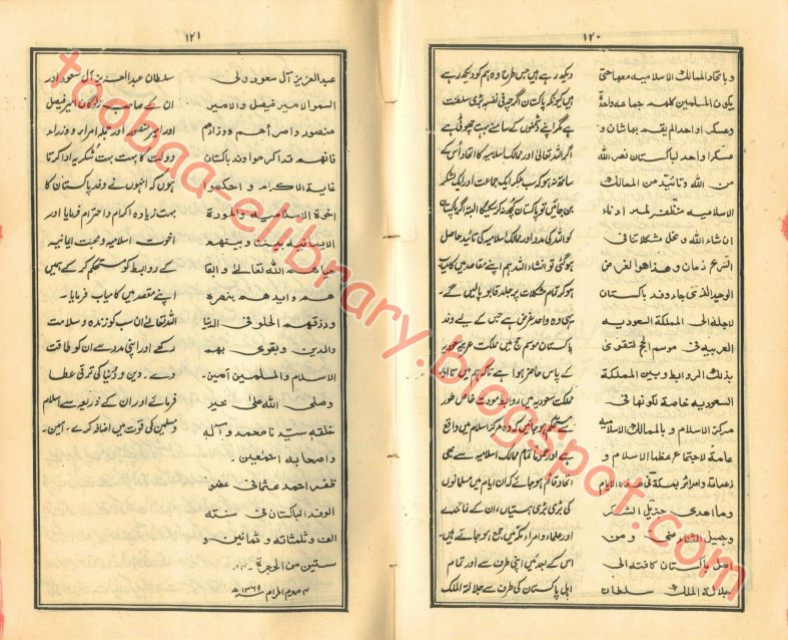 ۱۲۰
و باتحاد الممالك الاسلاميه معها حتى
يكون المسلمين كلهم جماعة واحدة
من الله وتائيد من الممالك
ان شاء الله وتحل مشكلاتنا في
اسرع زمان وهذا هو الغرض
الوحيد الذي جاء وفد باكستان
لاجله الى المملكة السعوديه
العربيه في موسم الحج لتقوى
بذلك الروابط وبين المملكة
السعوديه خاصة لكونها في
مركز الاسلام و بالممالك الاسلاميه
عامة لاجتماع عظماء الاسلام و
اهل باكستان كافة الى
جلالة الملك سلطان
دیکھ رہے ہیں جس طرح وہ ہم کو دیکھ رہے
ہیں کیونکہ پاکستان اگرچہ فی نفسہ بڑی سلطنت
ہے مگر اپنے دشمنوں کے سامنے بہت چھوٹی ہے
اگر اللہ تعالیٰ اور ممالک اسلامیہ کا اتحاد اس کے
ساتھ نہ ہو کہ سب ملکر ایک جماعت اور ایک لشکر
بن جائیں تو پاکستان کچھ نہ کر سکیگا البتہ اگر پاکستان
کو اللہ کی مدد اور ممالک اسلامیہ کی تائید حاصل
ہو گئی تو انشاء اللہ ہم اپنے مقاصد میں کامیاب
ہو کر تمام مشکلات پر جلد قابو پالیں گے۔
یہی وہ واحد غرض ہے جس کے لیے وفد
پاکستان موسم حج میں مملکت عربیہ سعودیہ
کے پاس حاضر ہوا ہے تاکہ ہم میں تا ابد
مملکت سعودیہ میں روابط مودت خاص طور
سے مستحکم ہو جائیں کہ وہ مرکز اسلام میں واقع
ہے اور عموماً تمام ممالک اسلامیہ سے بھی
اتحاد قائم ہو جائے کہ ان ایام میں مسلمانوں
کی بڑی بڑی ہستیاں، ان کے
اور علماء و امراء مکہ میں جمع ہو جاتے ہیں۔
اس کے بعد میں اپنی طرف سے اور تمام
اہل پاکستان کی طرف سے جلالۃ الملک
۱۲۱
عبدالعزيز آل سعود ولى
السمو الامير فيصل والامير
منصور و امراءهم ووزراءهم
فانهم قد اكرموا وفد باكستان
غاية الاكرام و احكموا
اخوة الاسلاميه والمودة
الايمانيه بيننا وبينهم
حماهم الله تعالى و ابقا
هم و ايدهم بنصره
ورزقهم العلو في الدنيا
والدين ويقوى بهم
الاسلام و المسلمين آمين۔
وصلى الله على خير
خلقه سيدنا محمد وآله
واصحابه اجمعين۔
ظفر احمد عثمانى عضو
الوفد الباكستانى فى سنته
الف وثلثمائه و ثمانين و
ستين من الهجرة
۱۳۶۹ھ
سلطان عبدالعزیز آل سعود اور
ان کے صاحب زادگان امیر فیصل
اور امیر منصور اور جملہ امراء و وزراء
دولت کا بہت بہت شکریہ ادا کرتا
ہوں کہ انہوں نے وفد پاکستان کا
بہت زیادہ اکرام و احترام فرمایا اور
اخوت اسلامیہ و محبت ایمانیہ
کے روابط کو مستحکم کر کے ہمیں
اپنے مقصد میں کامیاب فرمایا۔
اللہ تعالیٰ ان سب کو زندہ و سلامت
رکھے اور اپنی مدد سے ان کو طاقت
دے۔ دین و دنیا کی ترقی عطا
فرمائے اور ان کے ذریعہ سے اسلام
و مسلمین کی قوت میں اضافہ کرے۔ آمین۔
toobaa-elibrary.blogspot.com